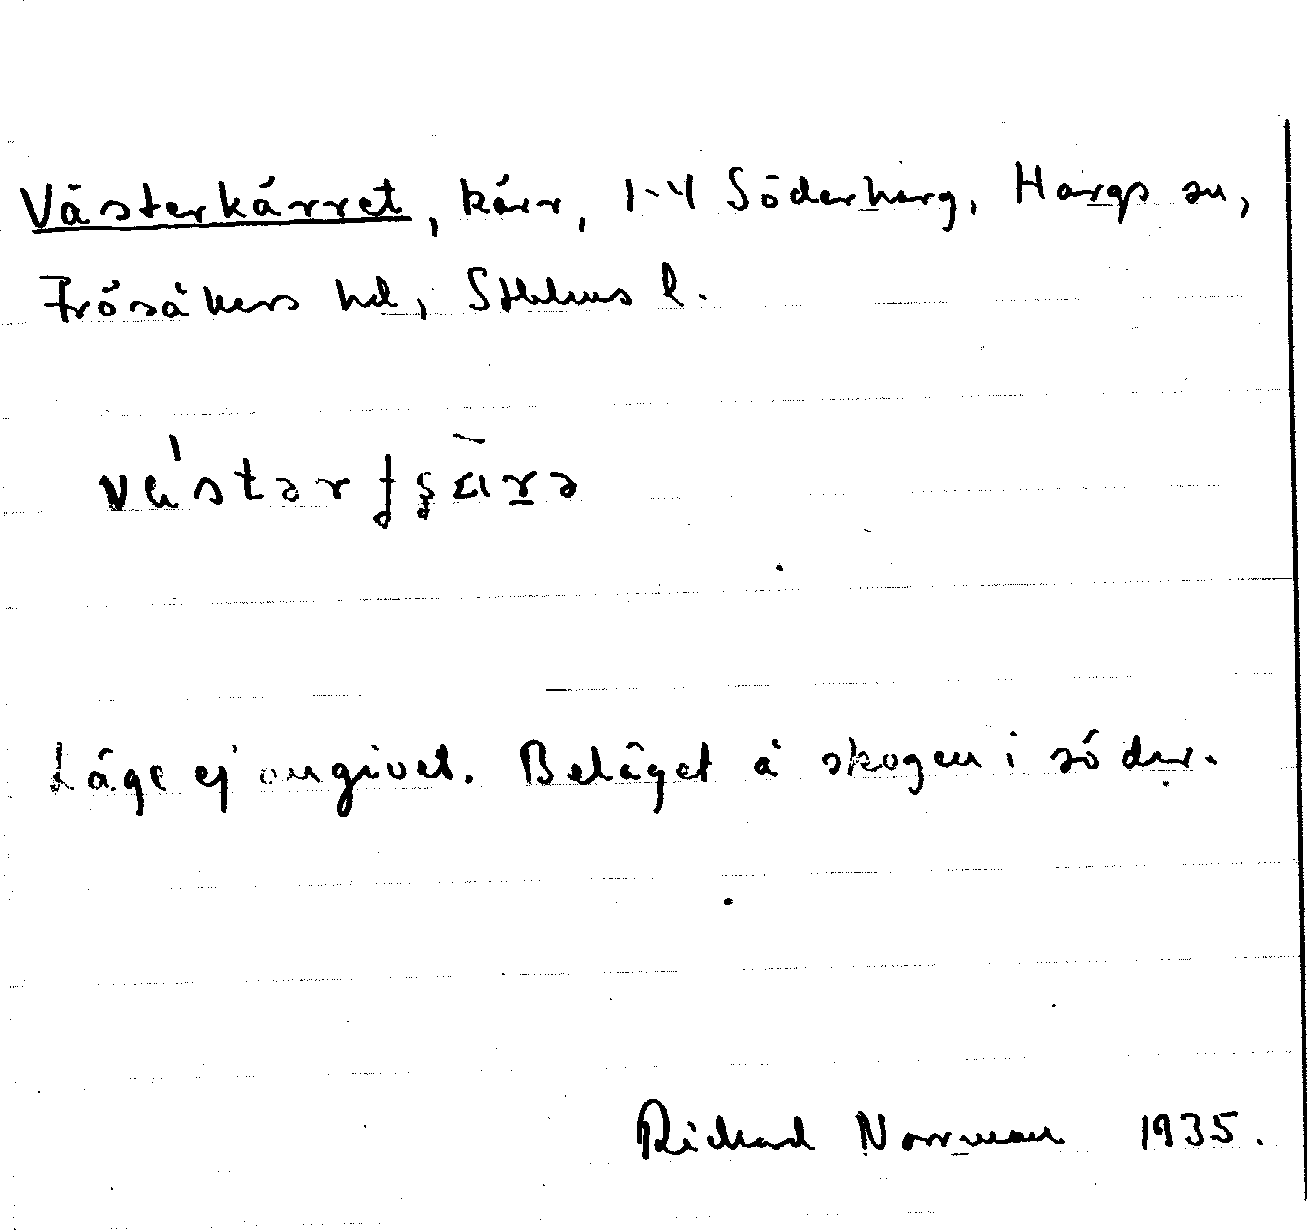 Västerkärret, kärr, 1-4 Söderharg, Hargs sn,
Frösåkers hd, Sthlms l.
Läge ej angivet. Beläget å skogen i söder.
Richard Norrman 1935.